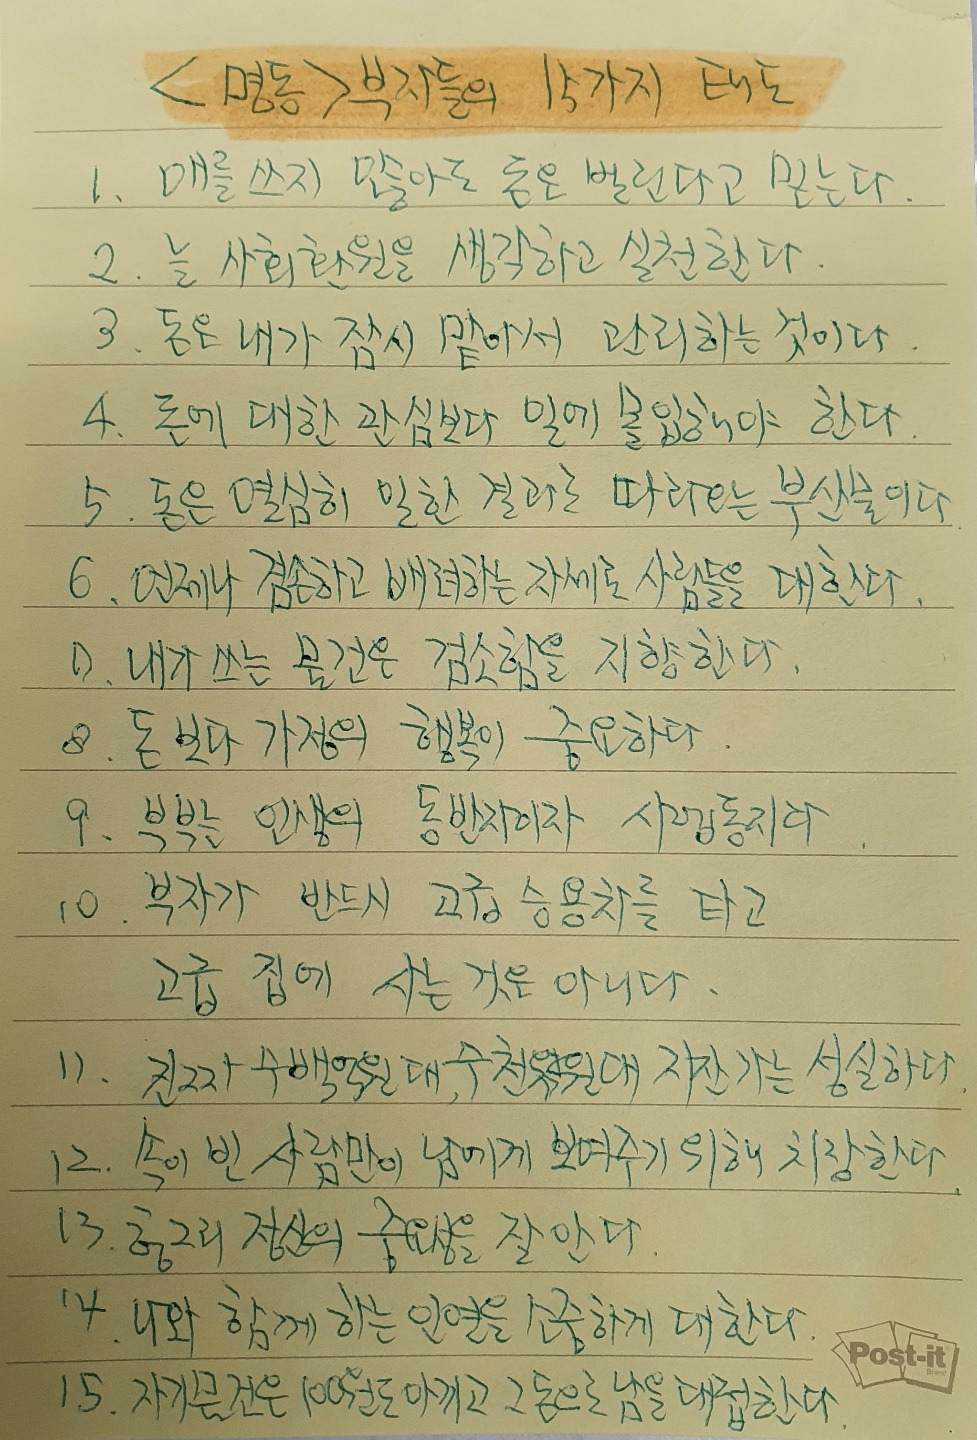 <명동>부자들의 15가지 태도
1. 애를 쓰지 않아도 돈은 벌린다고 믿는다.
2. 늘 사회환원을 생각하고 실천한다.
3. 돈은 내가 잠시 맡아서 관리하는 것이다.
4. 돈에 대한 관심보다 일에 몰입해야 한다.
5. 돈은 열심히 일한 결과로 따라오는 부산물이다
6. 언제나 겸손하고 배려하는 자세로 사람들을 대한다.
7. 내가 쓰는 물건은 검소함을 지향한다.
8. 돈보다 가정의 행복이 중요하다.
9. 부부는 인생의 동반자이자 사업동지다.
10. 부자가 반드시 고급 승용차를 타고
고급 집에 사는 것은 아니다.
11. 진짜 수백억원대, 수천억원대 자산가는 성실하다.
12. 속이 빈 사람만이 남에게 보여주기 위해 치장한다.
13. 헝그리 정신의 중요성을 잘 안다.
14. 나와 함께 하는 인연을 소중하게 대한다.
15. 자기물건은 100원도 아끼고 그 돈으로 남을 대접한다.
Post-it
Brand